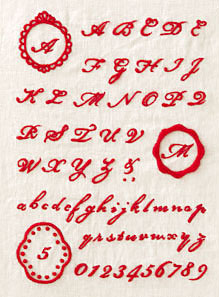 A
A B C D E
F G H I J
K L M N O P Q
R S T U V
W X Y Z &
M
abcdefghijklmnop
qrstuvwxyz
5
0123456789